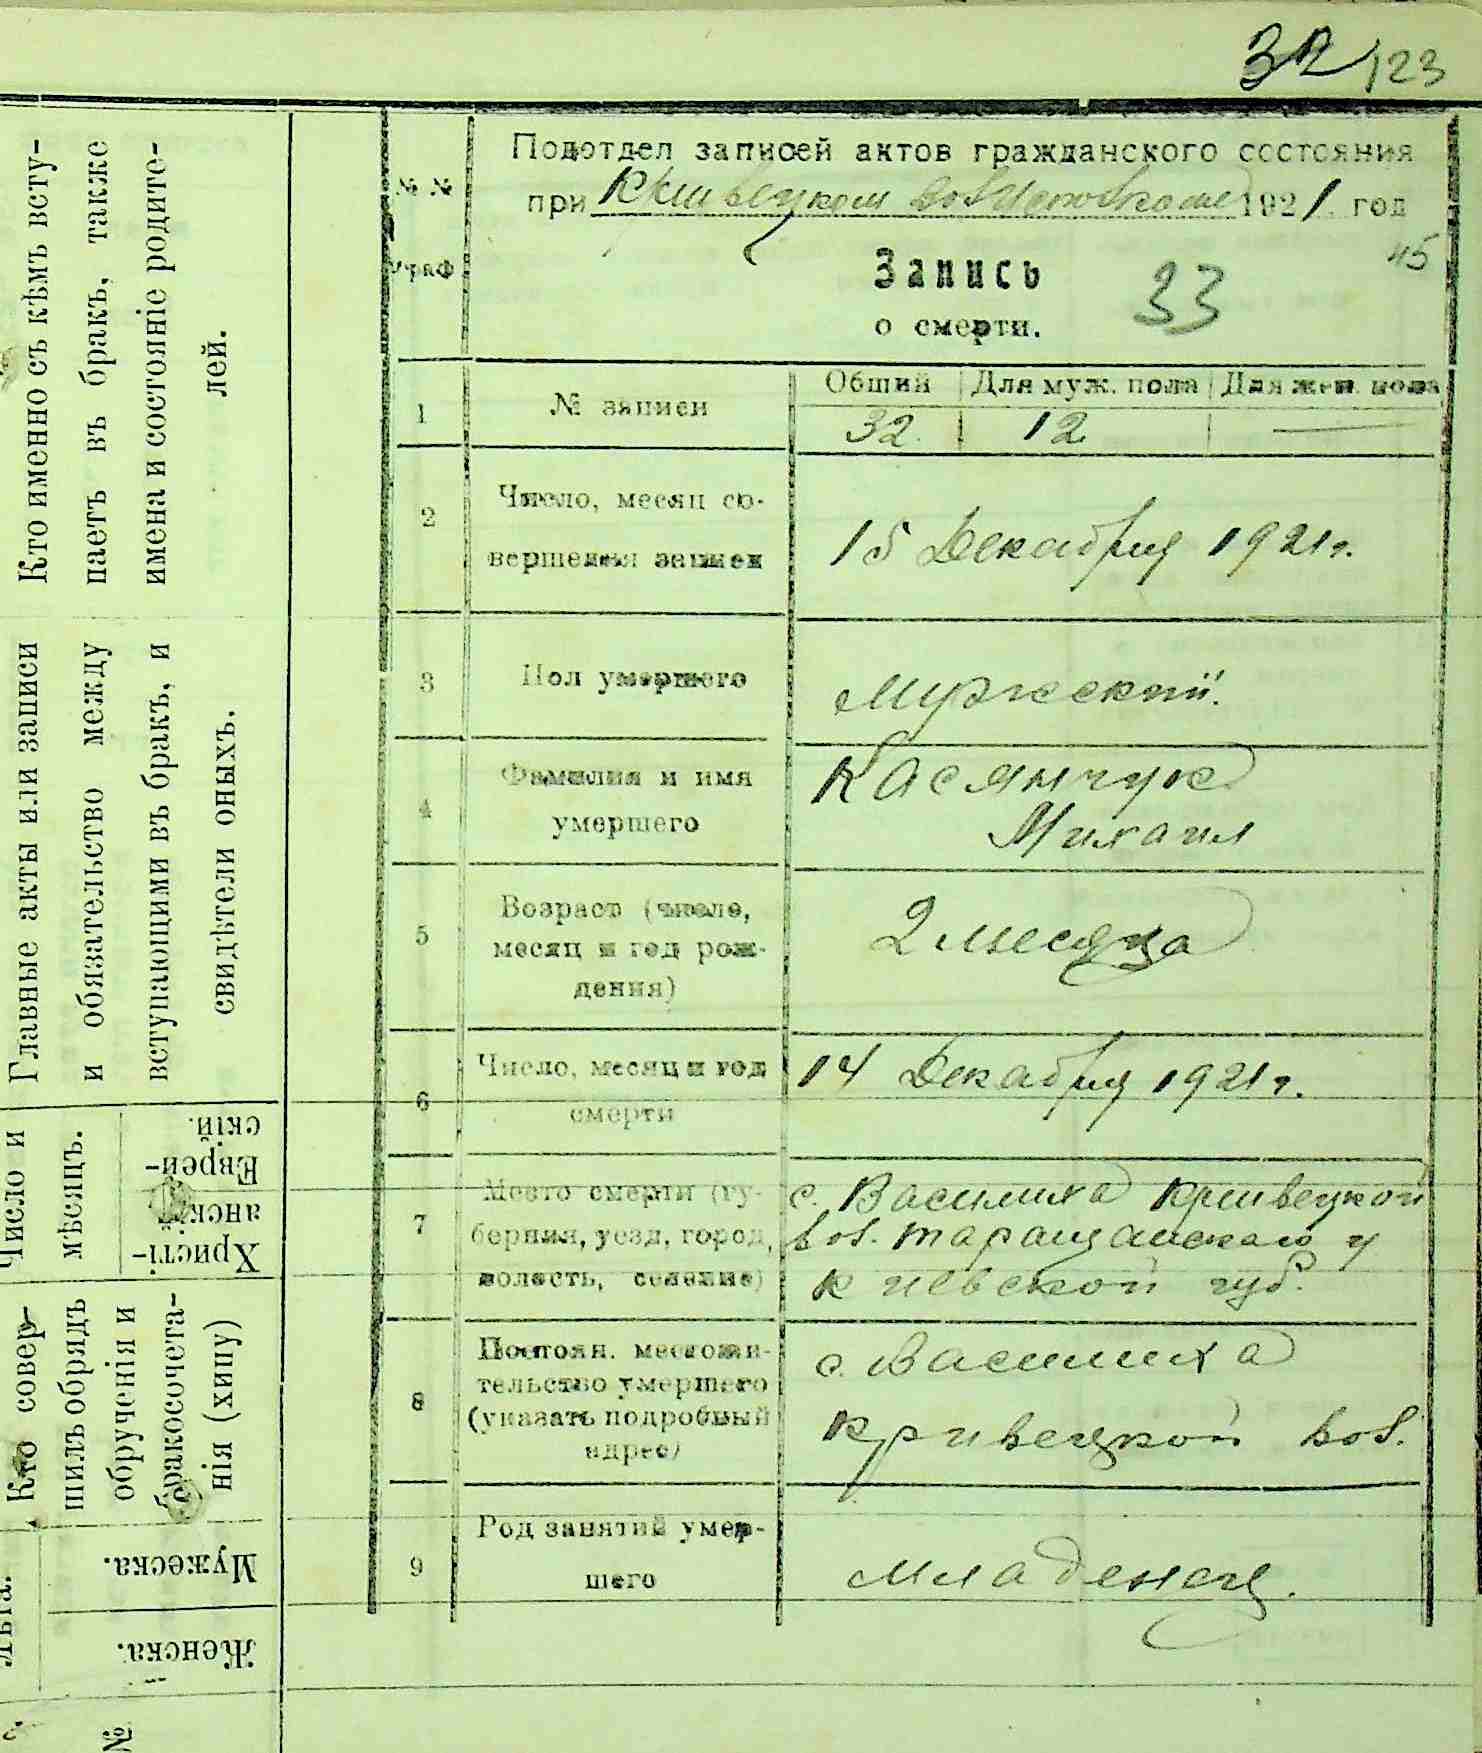 32 123
Подотдел записей актов гражданского состояния
при Кривецком Волисполкоме 1921 год
45
№ №
граф
Запись
33
о смерти.
1 № записи
Общий Для муж. пола Для жен. пола
32. 12 —
2 Число, месяц со-
вершения записи
15 Декабря 1921 г.
3 Пол умершего
Мужский.
4 Фамилия и имя
умершего
Касянчук
Михаил
5 Возраст (число,
месяц и год рож-
дения)
2 месяца
6 Число, месяц и год
смерти
14 Декабря 1921 г.
7 Место смерти (гу-
берния, уезд, город,
волость, селение)
с. Василиха Кривецкой
вол. Таращанского у
Киевской губ.
8 Постоян. местожи-
тельство умершего
(указать подробный
адрес)
с. Василиха
Кривецкой вол.
9 Род занятий умер-
шего
младенец.
Кто именно съ кѣмъ всту-
паетъ въ бракъ, также
имена и состояніе родите-
лей.
Главные акты или записи
и обязательство между
вступающими въ бракъ, и
свидѣтели оныхъ.
Число и
мѣсяцъ.
Еврей-
скій.
Христі-
анскій
Кто совер-
шилъ обрядъ
обрученія и
бракосочета-
нія (хипу)
Лѣта.
Мужеска.
Женска.
№